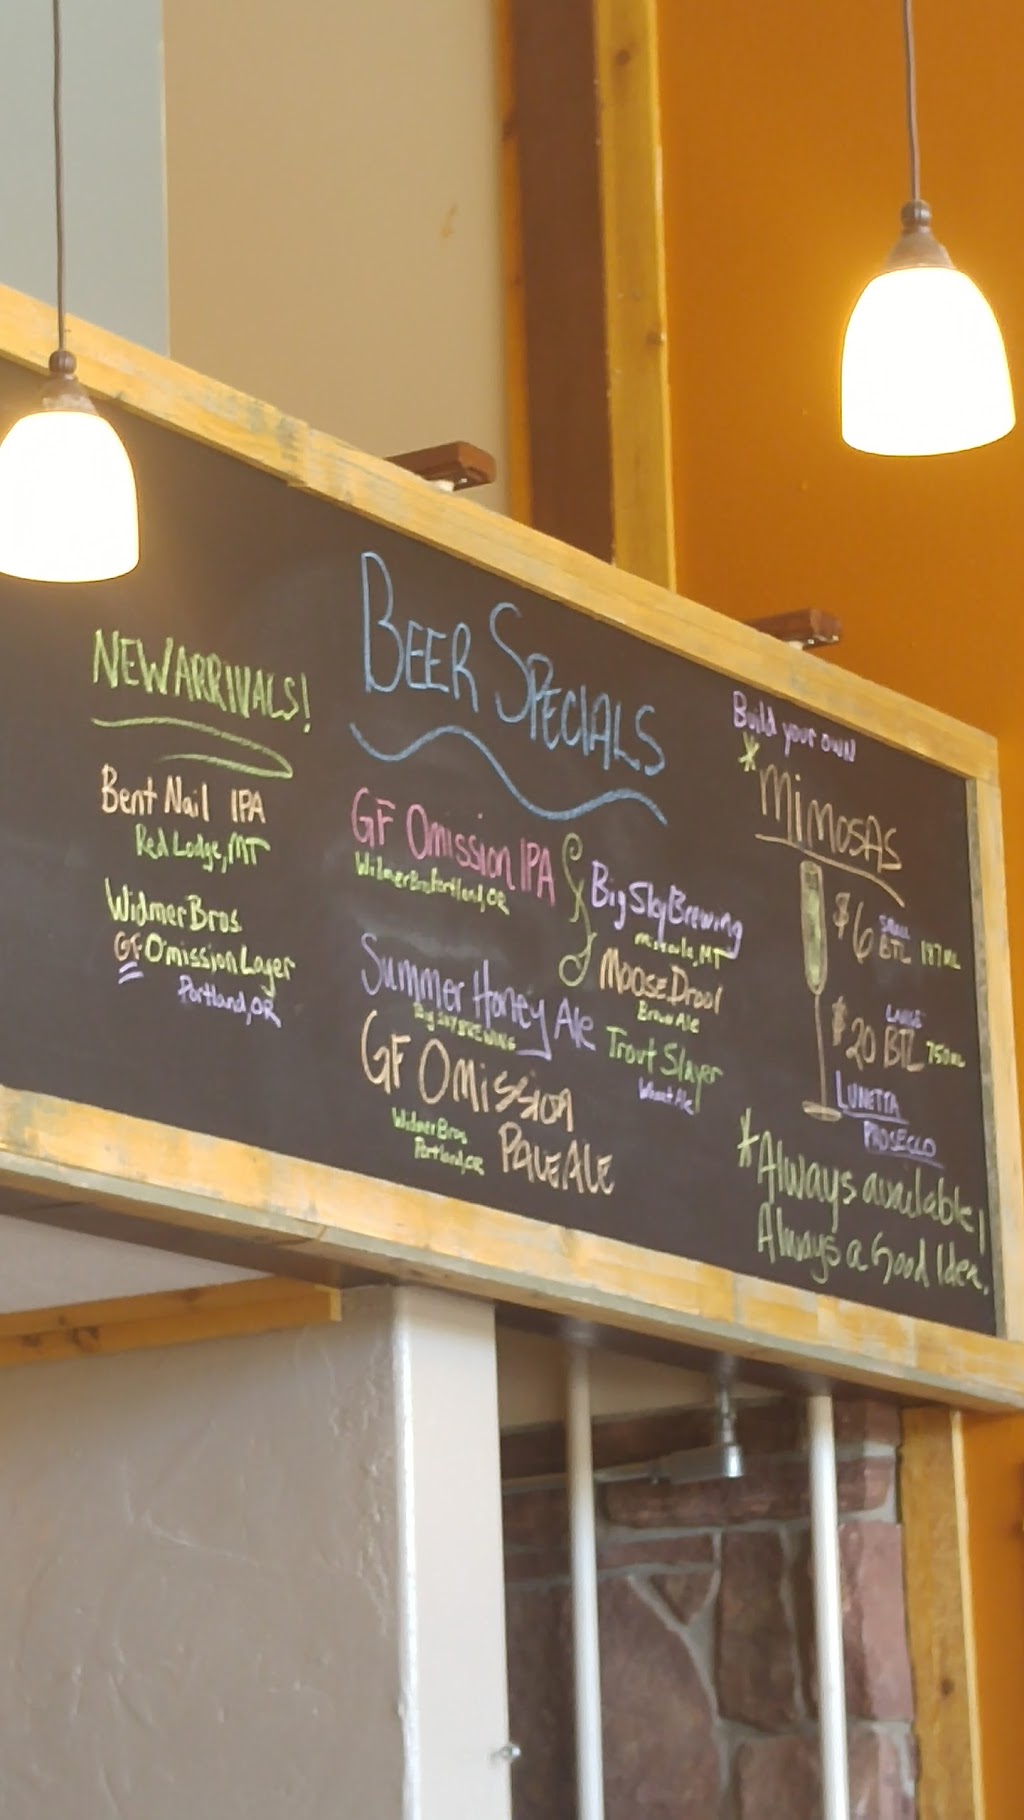 NEW ARRIVALS!
Bent Nail IPA
Red Lodge, MT
Widmer Bros.
GF Omission Lager
Portland, OR
BEER SPECIALS
GF Omission IPA
Widmer Bros Portland, OR
Summer Honey Ale
Big SKY BREWING
GF Omission
Pale Ale
Widmer Bros
Portland, OR
Big Sky Brewing
Missoula, MT
Moose Drool
Brown Ale
Trout Slayer
Wheat Ale
Build your own
*Mimosas
$6 SMALL BTL 187ML
$20 LARGE BTL 750ML
LUNETTA
PROSECCO
*Always available!
Always a Good Idea.